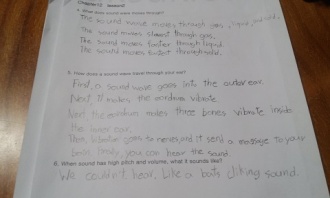 Chapter12 lesson2
4. What does sound move through?
The sound move moves through gas, liquid, and solid.
The sound moves slowest through gas.
The sound moves faster through liquid.
The sound moves fastest through solid.
5. How does a sound wave travel through your ear?
First, a sound wave goes into the outer ear.
Next it makes the eardrum vibrate
Next the eardrum makes three bones vibrate inside
the inner ear.
Then, vibration goes to nerves, and it send a message to your
brain. Finally, you can hear the sound.
6. When sound has high pitch and volume, what it sounds like?
We couldn't hear. Like a bats cliking sound.